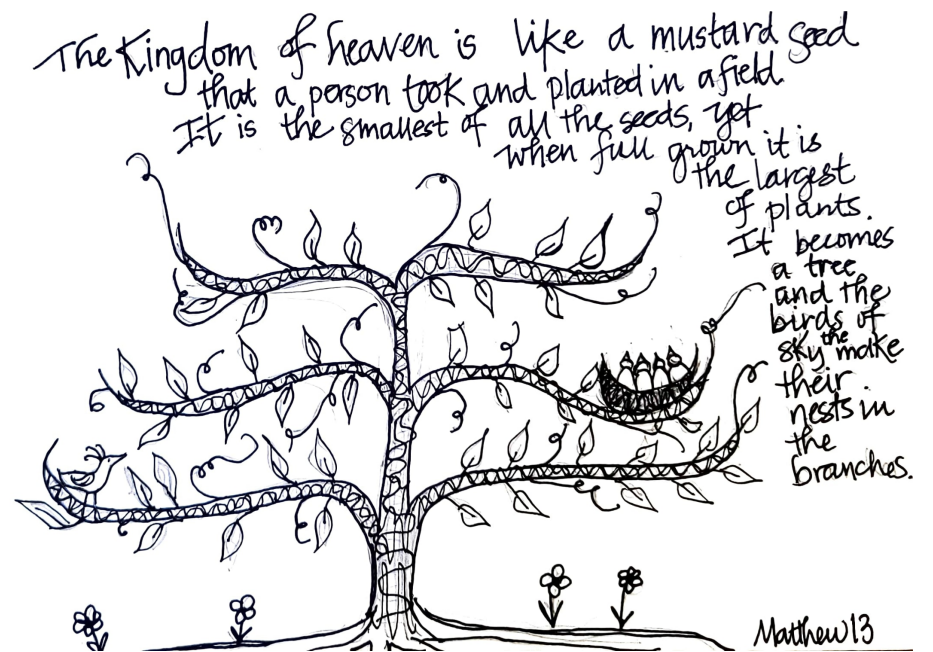 The Kingdom of heaven is like a mustard seed
that a person took and planted in a field
It is the smallest of all the seeds, yet
when full grown it is
the largest
of plants.
It becomes
a tree
and the
birds of
the
sky make
their
nests in
the
branches.
Matthew 13